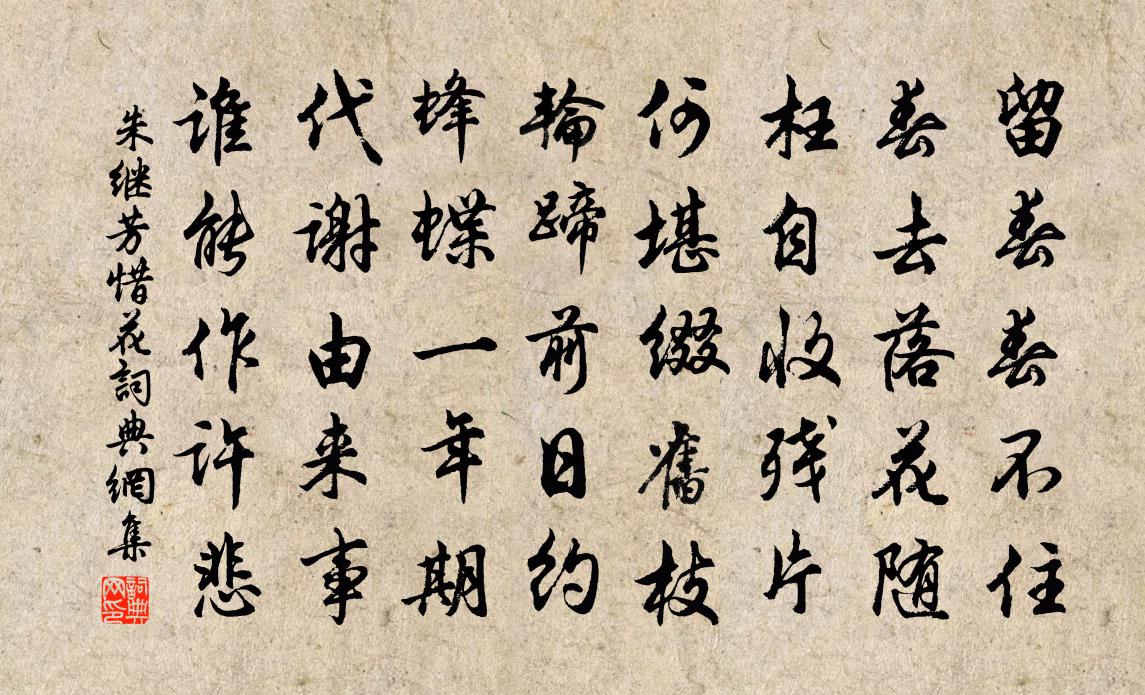 留春春不住
春去落花随
枉自收残片
何堪缀舊枝
輪蹄前日约
蜂蝶一年期
代谢由来事
谁能作许悲
朱继芳惜花詞典網集
詞典網印